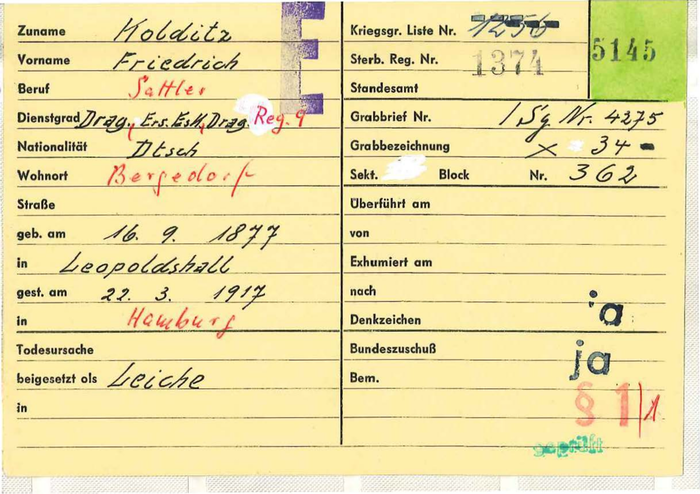 Zuname Kolditz
Vorname Friedrich
Beruf Sattler
Dienstgrad Drag. Ers. Esk. Drag. Reg. 9
Nationalität Dtsch
Wohnort Bergedorf
Straße
geb. am 16. 9. 1877
in Leopoldshall
gest. am 22. 3. 1917
in Hamburg
Todesursache
beigesetzt als Leiche
in
E
Kriegsgr. Liste Nr. 1256
Sterb. Reg. Nr. 1374
Standesamt
5145
Grabbrief Nr. / Sg Nr. 4275
Grabbezeichnung X 34 -
Sekt. Block Nr. 362
Überführt am
von
Exhumiert am
nach
Denkzeichen ja
Bundeszuschuß ja
Bem.
§ 1/1
geprüft